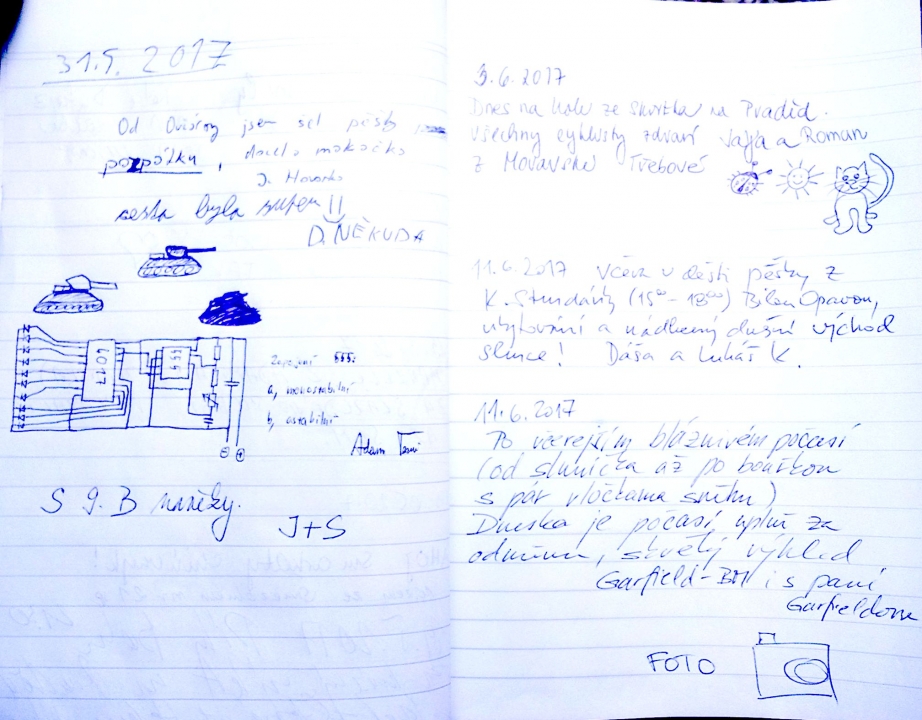 31.5. 2017
Od Ovčárny jsem šel pěšky
pozpátku,
J. Hovorka
cesta byla super!!
D. NĚKUDA
4017
555
Zapojení 555:
a, monostabilní
b, astabilní
Adam
S 9. B navěky.
J+S
3.6.2017
Dnes na kole ze na Praděd.
Všechny cyklisty zdraví Vajja a Roman
z Moravské Třebové
11.6.2017 Včera v dešti pěšky z
K. Studánky (15⁰⁰ - 18⁰⁰) Bílou Opavou,
ubytování a nádherný dnešní východ
slunce! Dáša a Lukáš K.
11.6.2017
Po včerejším bláznivém počasí
(od sluníčka až po bouřkou
s pár vločkama sněhu)
Dneska je počasí úplně za
odměnu, skvělý výhled
Garfield-BM i s paní
Garfieldovou
FOTO